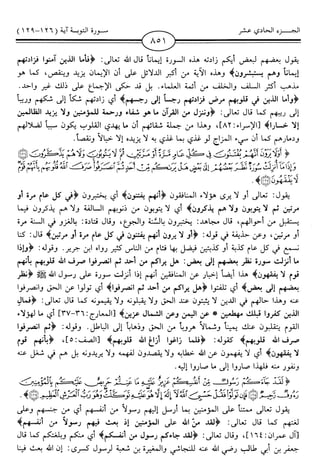 الجزء الحادي عشر
٨٥١
سورة التوبة آية (١٢٦–١٢٩)
يقول بعضهم لبعض أيكم زادته هذه السورة إيماناً قال الله تعالى: ﴿فأما الذين آمنوا فزادتهم
إيماناً وهم يستبشرون﴾ وهذه الآية من أكبر الدلائل على أن الإيمان يزيد وينقص، كما هو
مذهب أكثر السلف والخلف من أئمة العلماء. بل قد حكى الإجماع على ذلك غير واحد.
﴿وأما الذين في قلوبهم مرض فزادتهم رجساً إلى رجسهم﴾ أي زادتهم شكاً إلى شكهم وريباً
إلى ريبهم كما قال تعالى: ﴿وننزل من القرآن ما هو شفاء ورحمة للمؤمنين ولا يزيد الظالمين
إلا خساراً﴾ [الإسراء: ٨٢]، وهذا من جملة شقائهم أن ما يهدي القلوب يكون سبباً لضلالهم
ودمارهم كما أن سيء المزاج لو غذي بما غذي به لا يزيده إلا خبالاً ونقصاً.
﴿أولا يرون أنهم يفتنون في كل عام مرة أو مرتين ثم لا يتوبون ولا هم يذكرون
وإذا ما أنزلت سورة نظر بعضهم إلى بعض هل يراكم من أحد ثم انصرفوا صرف الله قلوبهم بأنهم قوم
لا يفقهون﴾.
يقول: تعالى أو لا يرى هؤلاء المنافقون ﴿أنهم يفتنون﴾ أي يختبرون ﴿في كل عام مرة أو
مرتين ثم لا يتوبون ولا هم يذكرون﴾ أي لا يتوبون من ذنوبهم السالفة ولا هم يذكرون فيما
يستقبل من أحوالهم، قال مجاهد: يختبرون بالسَّنة والجوع، وقال قتادة: بالغزو في السنة مرة
أو مرتين، وعن حذيفة في قوله: ﴿أو لا يرون أنهم يفتنون في كل عام مرة أو مرتين﴾ قال: كنا
نسمع في كل عام كذبة أو كذبتين فيضل بها فئام من الناس كثير رواه ابن جرير. وقوله: ﴿وإذا
ما أنزلت سورة نظر بعضهم إلى بعض: هل يراكم من أحد ثم انصرفوا صرف الله قلوبهم بأنهم
قوم لا يفقهون﴾ هذا أيضاً إخبار عن المنافقين أنهم إذا أنزلت سورة على رسول الله ﷺ ﴿نظر
بعضهم إلى بعض﴾ أي تلفتوا ﴿هل يراكم من أحد ثم انصرفوا﴾ أي تولوا عن الحق وانصرفوا
عنه وهذا حالهم في الدين لا يثبتون عند الحق ولا يقبلونه ولا يقيمونه كما قال تعالى: ﴿فمال
الذين كفروا قبلك مهطعين * عن اليمين وعن الشمال عزين﴾ [المعارج: ٣٦–٣٧] أي ما لهؤلاء
القوم يتقللون عنك يميناً وشمالاً هروباً من الحق وذهاباً إلى الباطل. وقوله: ﴿ثم انصرفوا
صرف الله قلوبهم﴾ كقوله: ﴿فلما زاغوا أزاغ الله قلوبهم﴾ [الصف: ٥]، ﴿بأنهم قوم
لا يفقهون﴾ أي لا يفقهون عن الله خطابه ولا يقصدون لفهمه ولا يريدونه بل هم في شغل عنه
ونفور منه فلهذا صاروا إلى ما صاروا إليه.
﴿لقد جاءكم رسول من أنفسكم عزيز عليه ما عنتم حريص عليكم بالمؤمنين
رءوف رحيم فإن تولوا فقل حسبي الله لا إله إلا هو عليه توكلت وهو رب العرش العظيم﴾.
يقول تعالى ممتناً على المؤمنين بما أرسل إليهم رسولاً من أنفسهم أي من جنسهم وعلى
لغتهم كما قال تعالى: ﴿لقد منّ الله على المؤمنين إذ بعث فيهم رسولاً من أنفسهم﴾
[آل عمران: ١٦٤]، وقال تعالى: ﴿لقد جاءكم رسول من أنفسكم﴾ أي منكم وبلغتكم كما قال
جعفر بن أبي طالب رضي الله عنه للنجاشي والمغيرة بن شعبة لرسول كسرى: إن الله بعث فينا